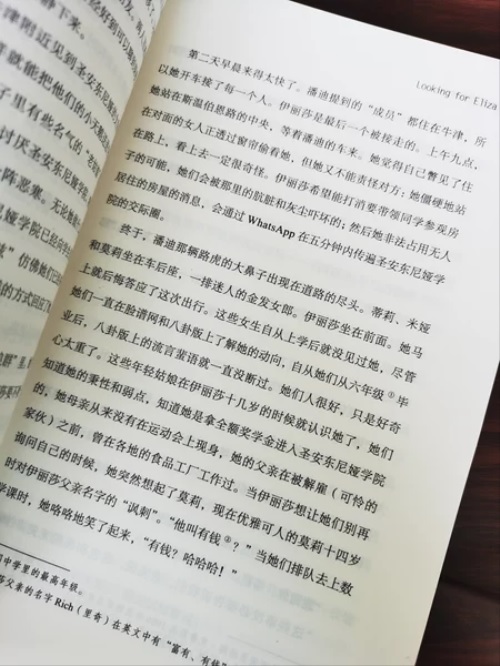 Looking for Eliza
第二天早晨来得太快了。潘迪提到的“成员”都住在牛津，所
以她开车接了每一个人。伊丽莎是最后一个被接走的。上午九点，
她站在斯温伯恩路的中央，等着潘迪的车来。她觉得自己瞥见了住
在对面的女人正透过窗帘偷看她，但她又不能责怪对方：她僵硬地站
在路上，看上去一定很奇怪。伊丽莎希望能打消要带领同学参观房
子的可能，她们会被那里的肮脏和灰尘吓坏的；然后她非法占用无人
居住的房屋的消息，会通过 WhatsApp 在五分钟内传遍圣安东尼娅学
院的交际圈。
终于，潘迪那辆路虎的大鼻子出现在道路的尽头。蒂莉、米娅
和莫莉坐在车后座，一排迷人的金发女郎。伊丽莎坐在前面。她马
上就后悔答应了这次出行。这些女生自从上学后就没见过她，尽管
她们一直在脸谱网和八卦版上了解她的动向，自从她们从六年级①毕
业后，八卦版上的流言蜚语就一直没断过。她们人很好，只是好奇
心太重了。这些年轻姑娘在伊丽莎十几岁的时候就认识她了，她们
知道她的秉性和弱点，知道她是拿全额奖学金进入圣安东尼娅学院
的，她母亲从来没有在运动会上现身，她的父亲在被解雇（可怜的
家伙）之前，曾在各地的食品工厂工作过。当伊丽莎想让她们别再
询问自己的时候，她突然想起了莫莉，现在优雅可人的莫莉十四岁
时对伊丽莎父亲名字的“讽刺”。“他叫有钱②？”当她们排队去上数
学课时，她咯咯地笑了起来，“有钱？哈哈哈！”
中学里的最高年级。
父亲的名字 Rich（里奇）在英文中有“富有、有钱”
静下来。
津附近见到圣安东
有就能把他们的八天鹅
子里有些名气的“老
讨厌圣安东尼
阵恶寒。无论
娅学院已经
”仿佛她们
的方式回应了